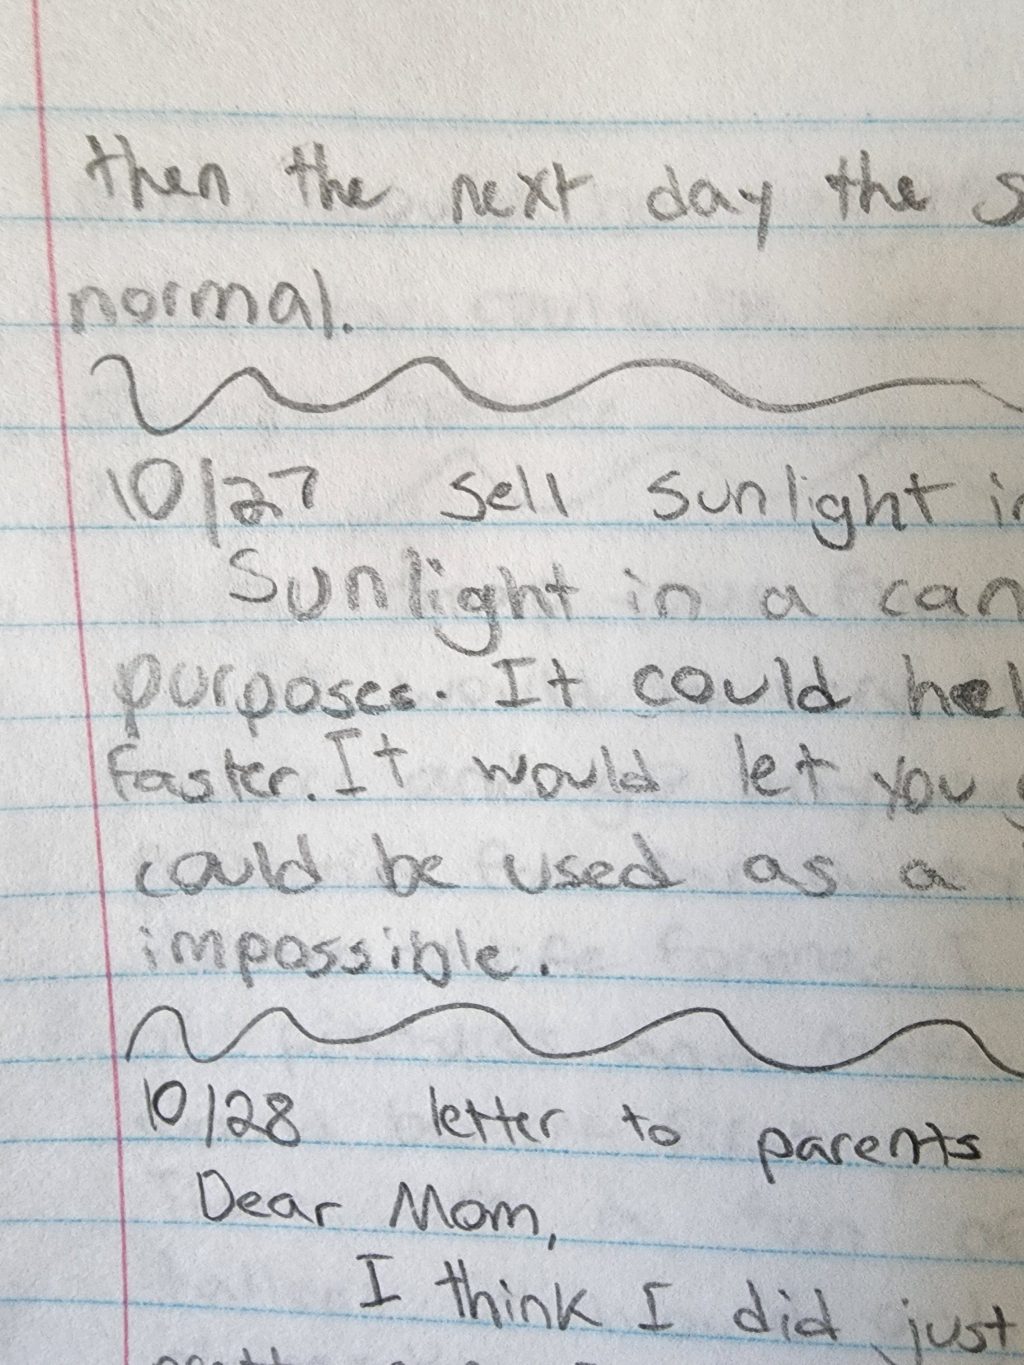 then the next day the
normal.
10/27 sell sunlight
Sunlight in a can
purposes. It could
faster. It would let you
could be used as a
impossible.
10/28 letter to parents
Dear Mom,
I think I did just